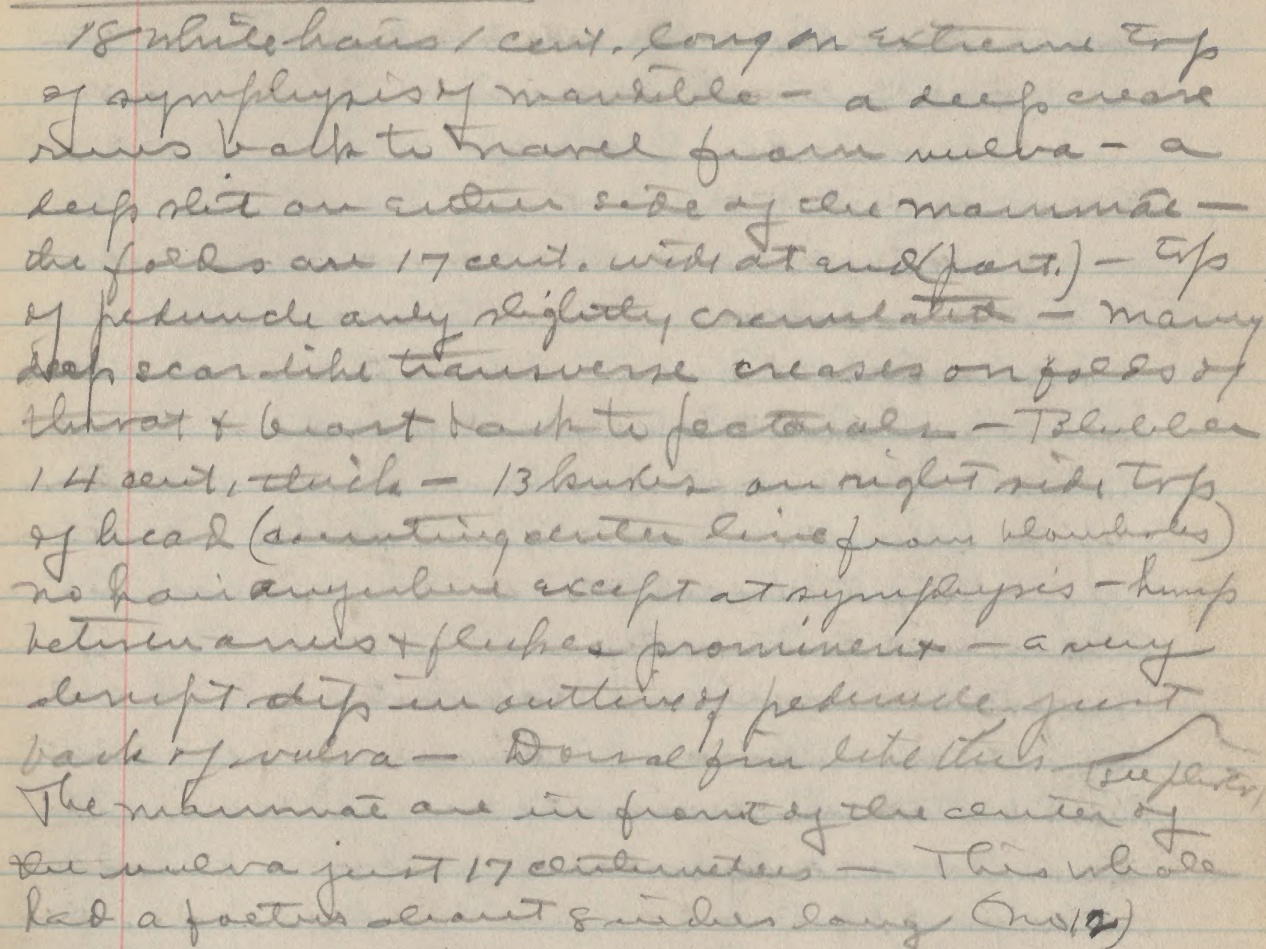 18 white hairs 1 cent. long on extreme top
of symphysis of mandible - a deep crease
runs back to navel from vulva - a
deep slit on either side of the mammae -
the folds are 17 cent. wide at end (post.) - top
of peduncle only slightly crenulated - many
deep scar-like transverse creases on folds of
throat & breast back to pectorals - Blubber
14 cent, thick - 13 knobs on right side top
of head (counting center line from blowholes)
no hair anywhere except at symphysis - hump
between anus & flukes prominent - a very
abrupt dip in outline of peduncle just
back of vulva - Dorsal fin like this (see photos)
The mammae are in front of the center of
the vulva just 17 centimeters - This whale
had a foetus about 8 inches long (No 12)